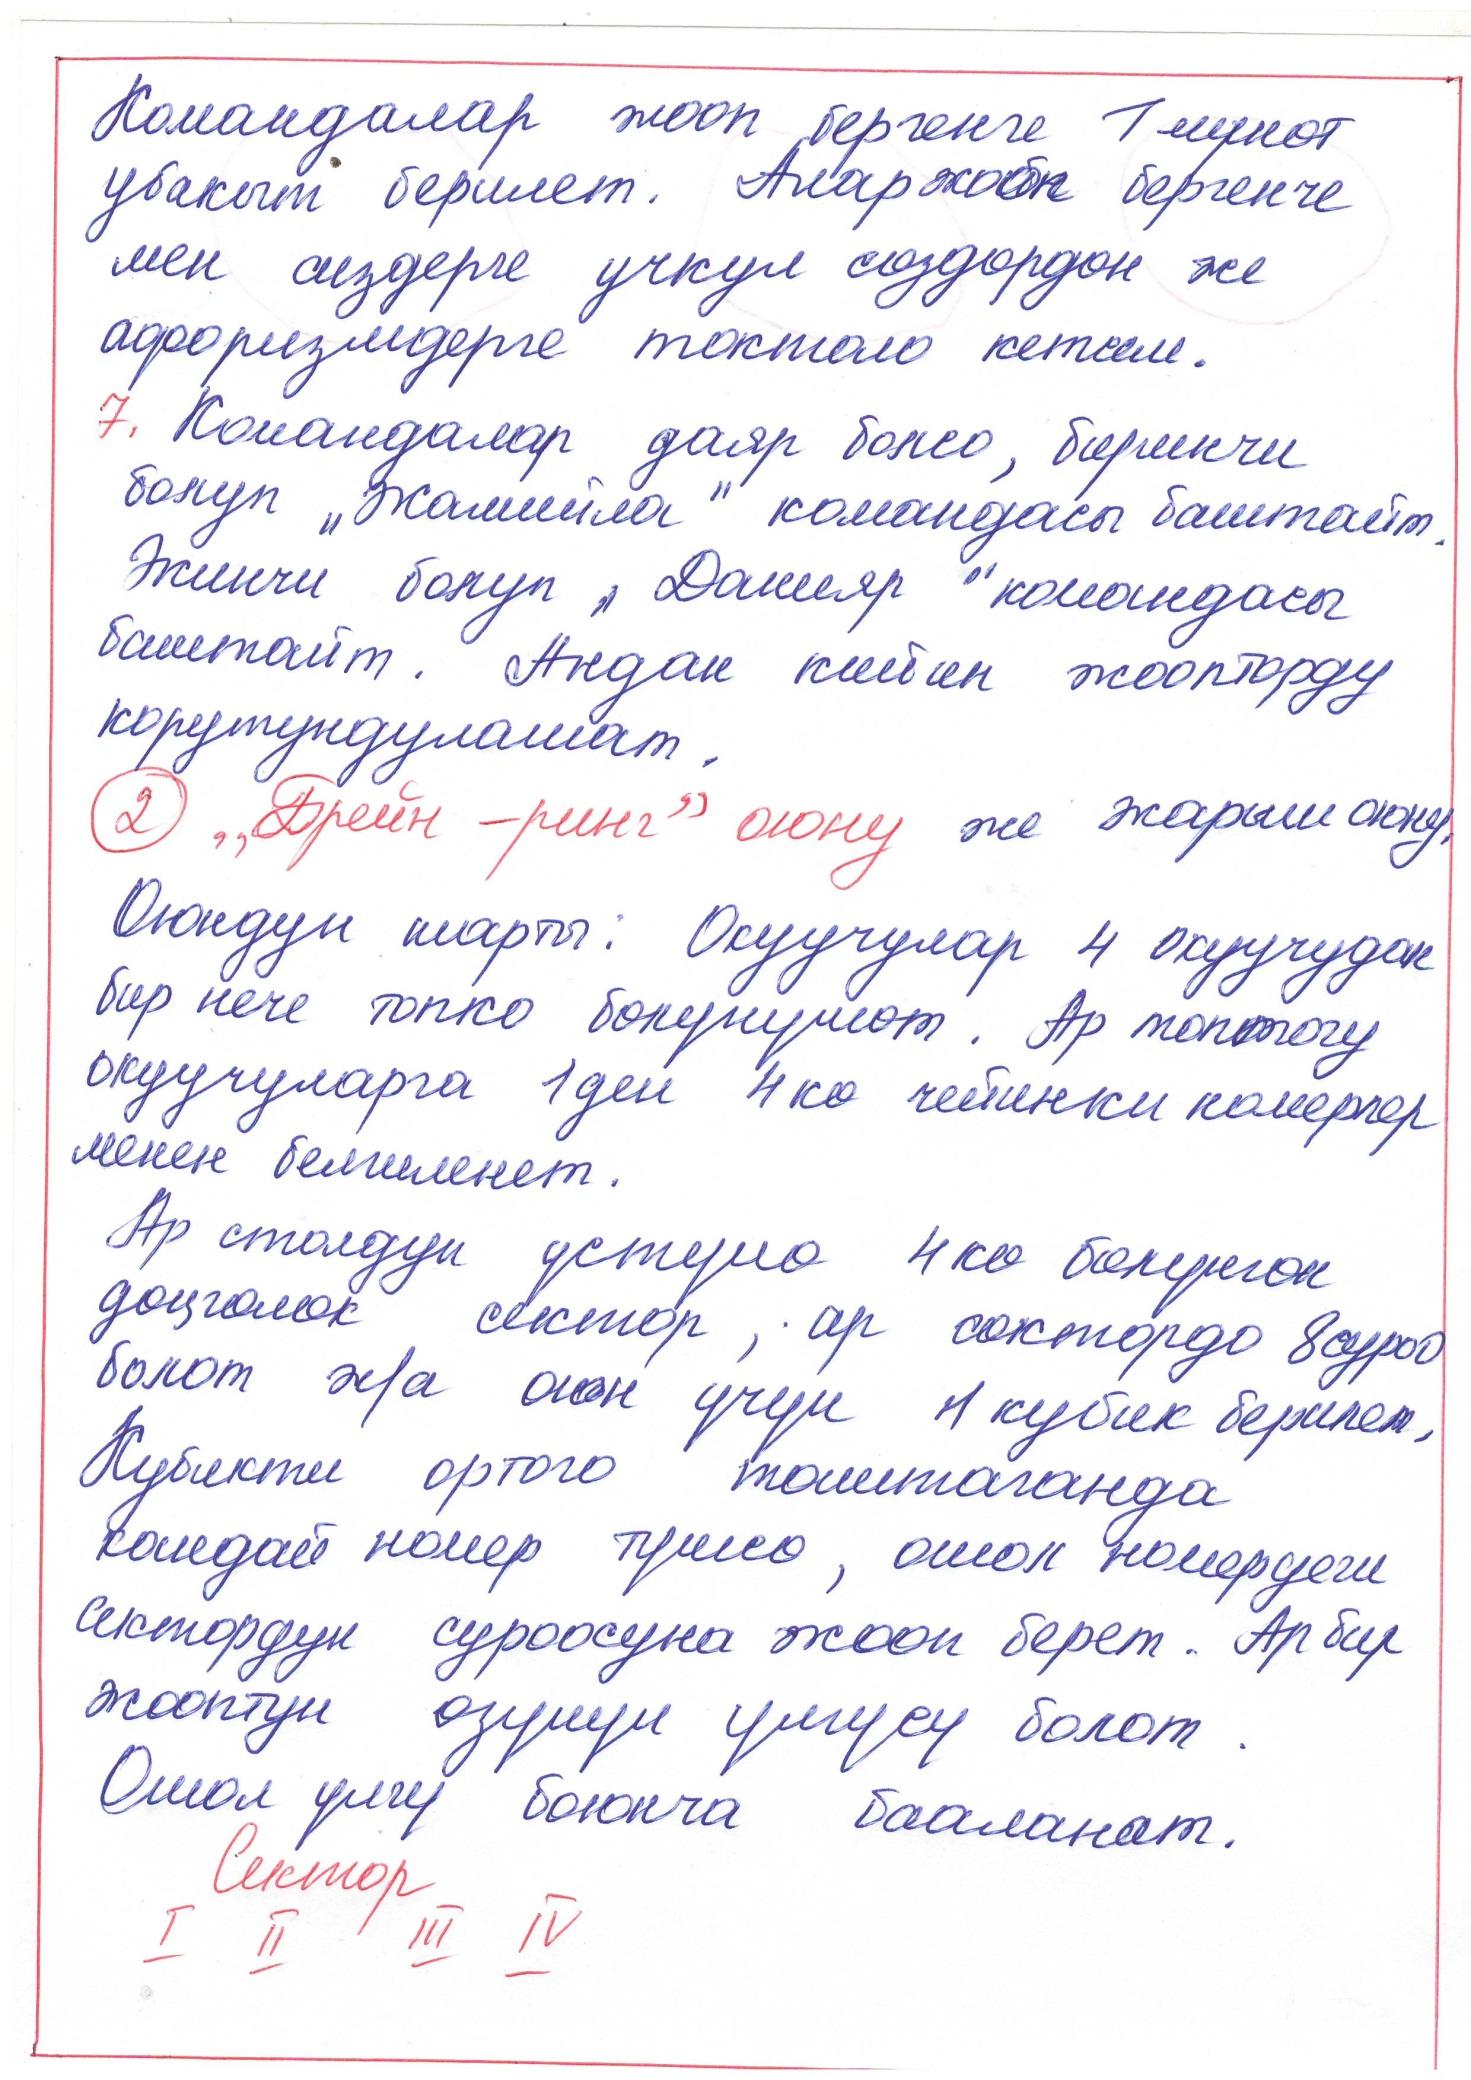 Командалар жооп бергенге 1 минот
убакыт берилет. Алар жооп бергенче
мен сиздерге учкул создордон же
афоризмдерге токтоло кетем.
7. Командалар даяр болсо, биринчи
болуп „Жамийла" командасы баштайт.
Экинчи болуп „Данияр" командасы
баштайт. Андан кийин жоопторду
корутундулашат.
2 „Брейн-ринг" оюну же жарыш оюну.
Оюндун шарты: Окуучулар 4 окуучудан
бир нече топко болунушот. Ар топтогу
окуучуларга 1 ден 4 ко чейинки номерлер
менен белгиленет.
Ар столдун устуно 4 ко болунгон
доңголок сектор, ар сектордо 8 суроо
болот ж/а оюн учун 1 кубик берилет,
Кубикти ортого таштаганда
кандай номер тушсо, ошол номердеги
сектордун суроосуна жооп берет. Ар бир
жооптун озунун улгусу болот.
Ошол улгу боюнча бааланат.
Сектор
I II III IV